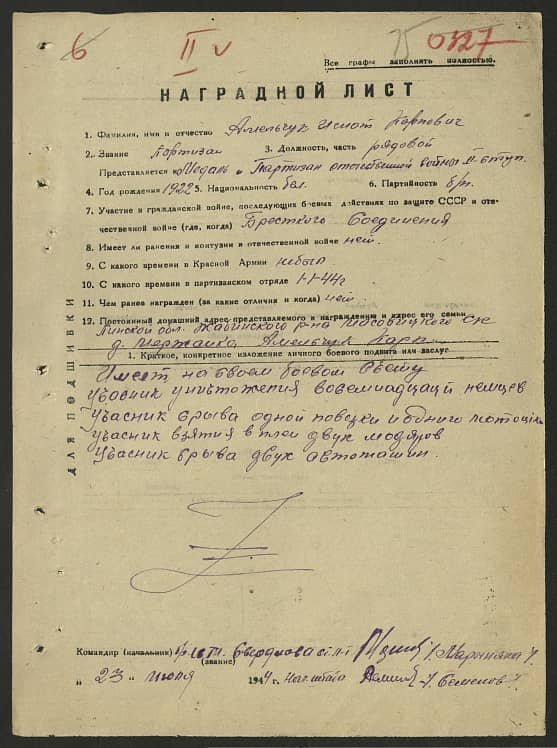 6 II v 75 0327
Все графы заполнять полностью.
НАГРАДНОЙ ЛИСТ
1. Фамилия, имя и отчество Амельчук Игнат Карпович
2. Звание Партизан 3. Должность, часть рядовой
Представляется „Медаль „Партизан отечественной войны II ступ.
4. Год рождения 1922 5. Национальность бел. 6. Партийность б/п.
7. Участие в гражданской войне, последующих боевых действиях по защите СССР и оте-
чественной войне (где, когда) Брестского Соединения
8. Имеет ли ранения и контузии в отечественной войне нет.
9. С какого времени в Красной Армии небыл
10. С какого времени в партизанском отряде 1-1-44г
11. Чем ранее награжден (за какие отличия и когда) нет.
12. Постоянный домашний адрес представляемого к награждению и адрес его семьи
Пинской обл. р-на с/с
д. Амельчук Карп
1. Краткое, конкретное изложение личного боевого подвига или заслуг
Имеет на своем боевой
Учасник уничтожения восемнадцаци немцев
Учасник взрыва одной повозки и одного мотоцикл
Учасник взятия в плен двух мадяров
Учасник взрыва двух автомашин.
ДЛЯ ПОДШИВКИ
Командир (начальник) Свердлова
(звание)
„ 23 „ июля 1944 г. нач. штаба / Семенов /